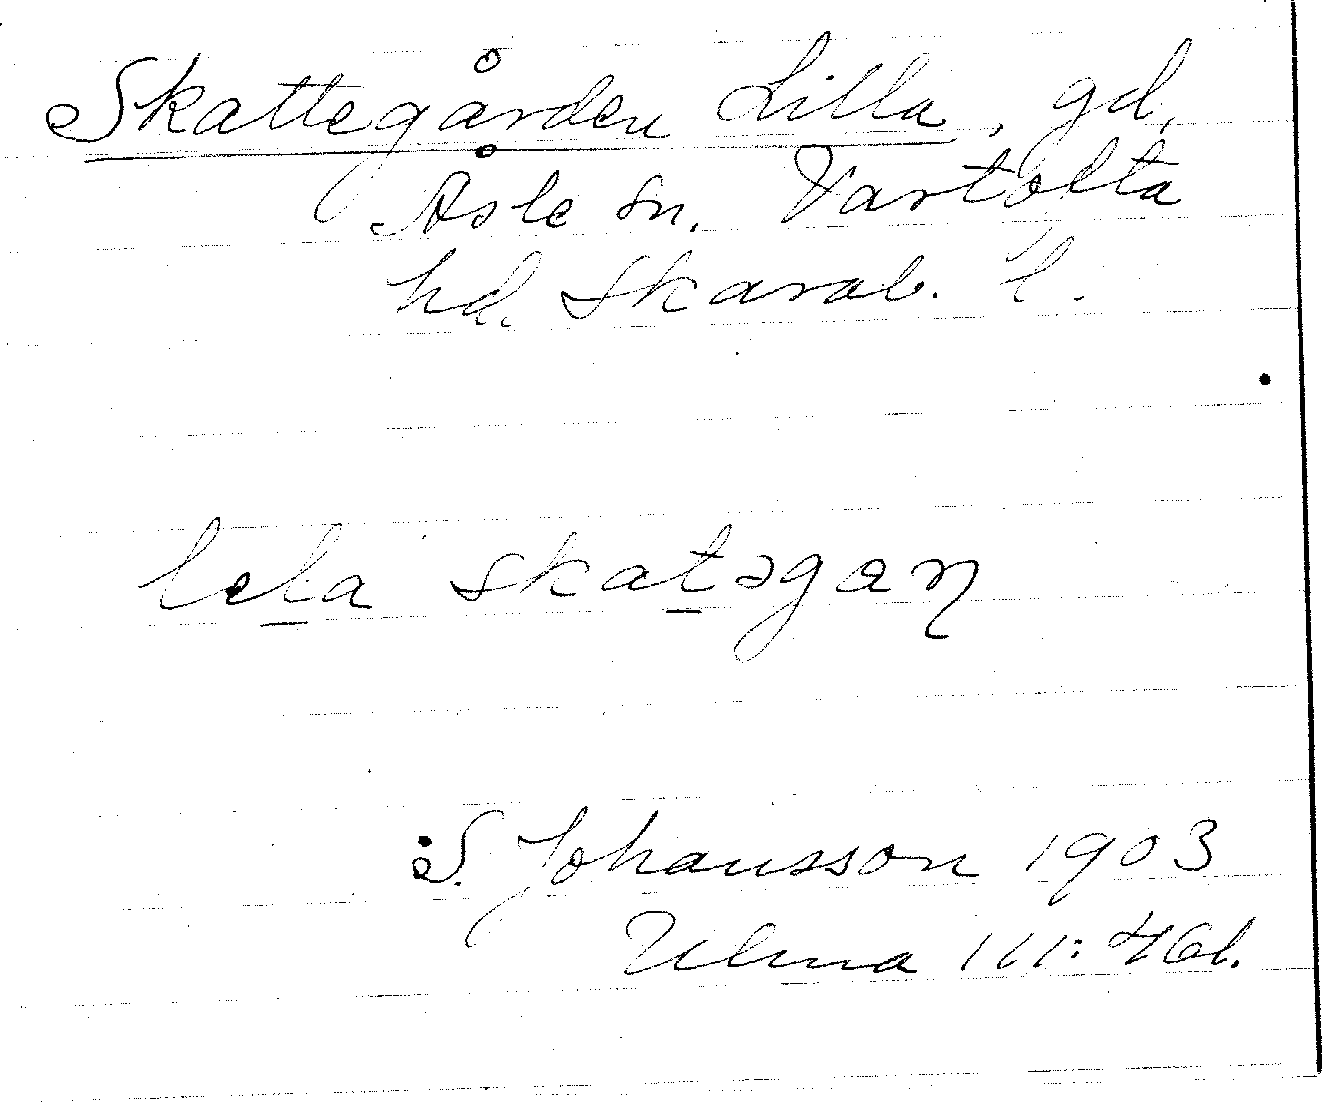 Skattegården Lilla, gd,
Åsle sn. Vartofta
hd. Skarab. l.
lela skatəgaɳ
S. Johansson 1903
Ulma 111:461.